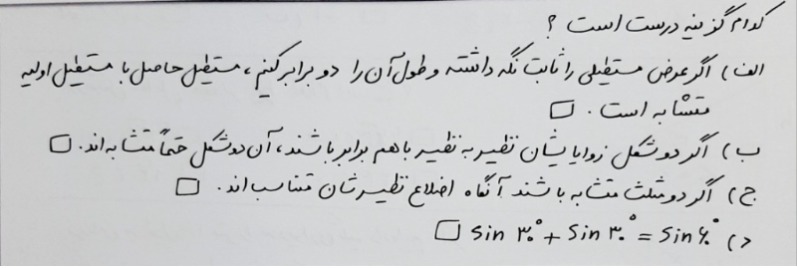 کدام گزینه درست است ؟
الف) اگر عرض مستطیلی را ثابت نگه داشته و طول آن را دو برابر کنیم، مستطیل حاصل با مستطیل اولیه
متشابه است . □
ب) اگر دو شکل زوایایشان نظیر به نظیر با هم برابر باشند، آن دو شکل حتماً متشابه‌اند. □
ج) اگر دو مثلث متشابه باشند آنگاه اضلاع نظیرشان متناسب‌اند. □
د) sin ۳۰° + sin ۳۰° = sin ۶۰° □